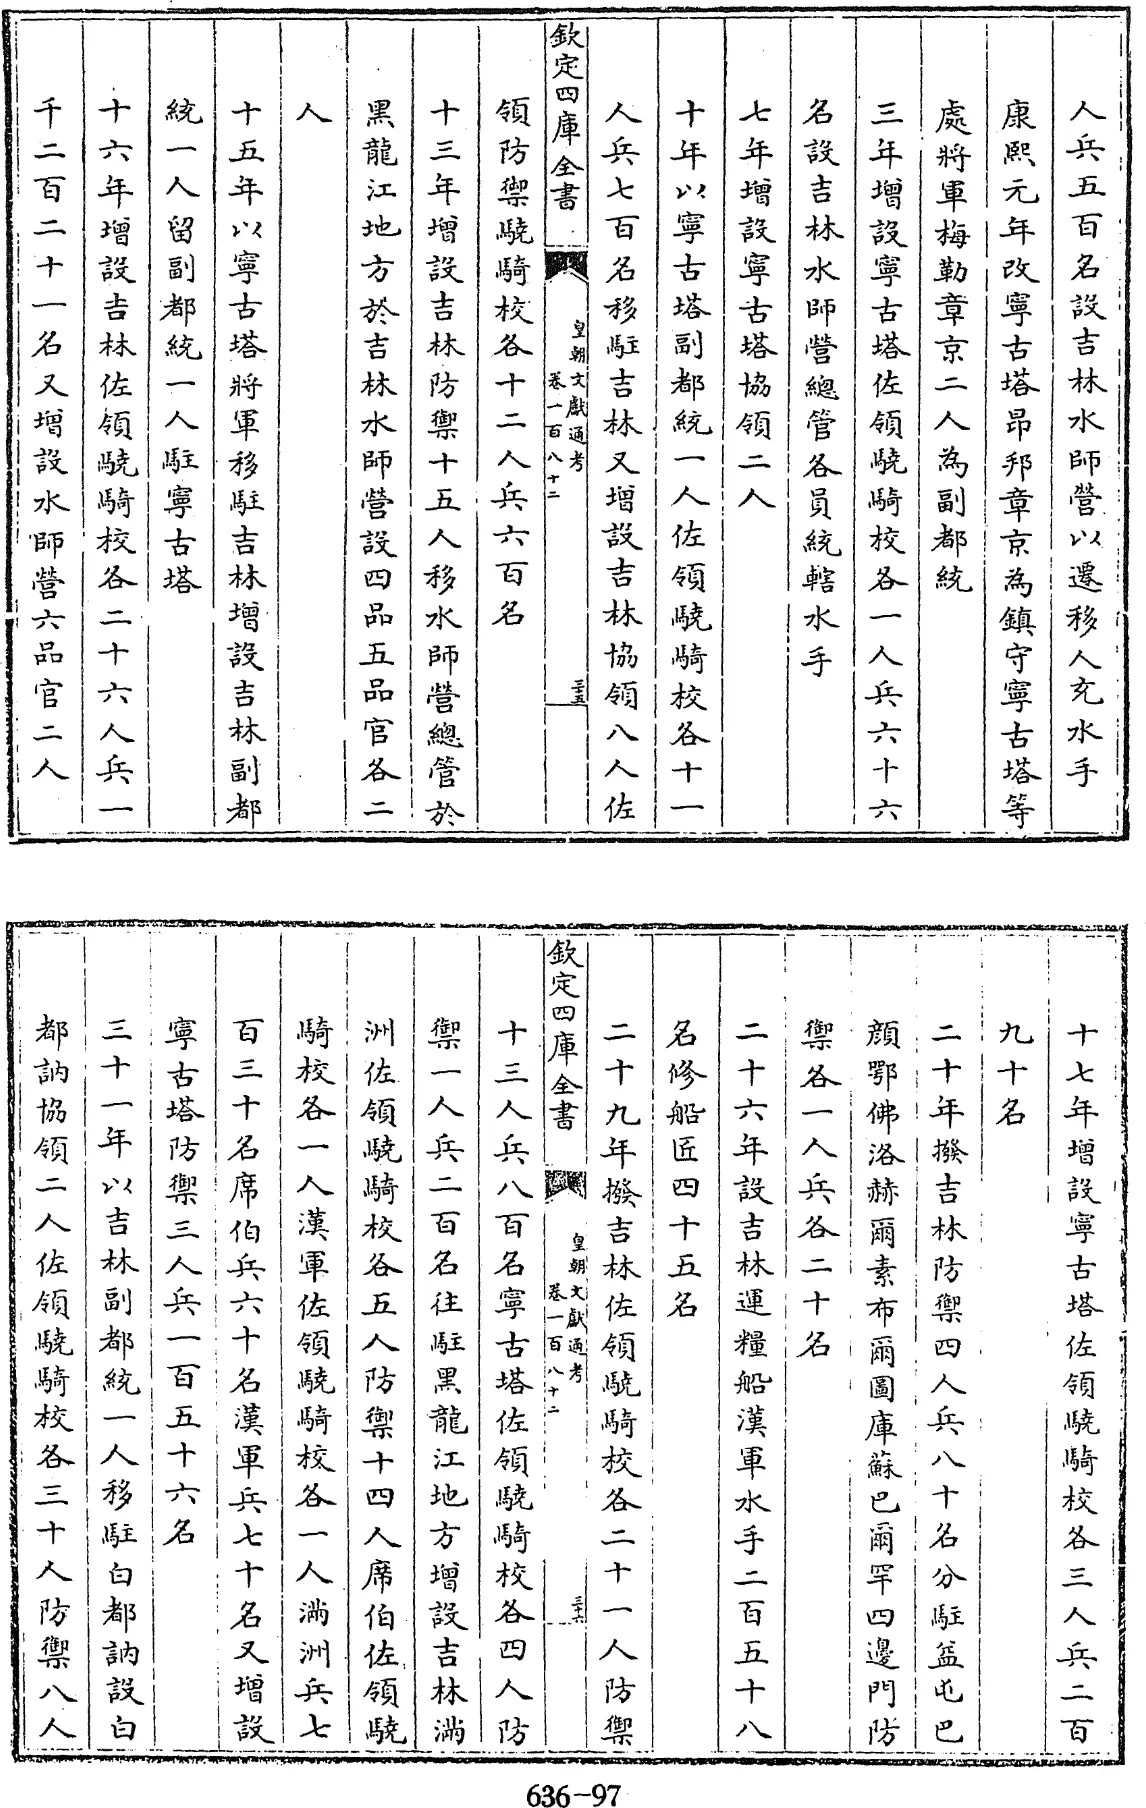 人兵五百名設吉林水師營以遷移人充水手
康熙元年改寧古塔昂邦章京為鎮守寧古塔等
處將軍梅勒章京二人為副都統
三年增設寧古塔佐領驍騎校各一人兵六十六
名設吉林水師營總管各員統轄水手
七年增設寧古塔協領二人
十年以寧古塔副都統一人佐領驍騎校各十一
人兵七百名移駐吉林又增設吉林協領八人佐
欽定四庫全書
皇朝文獻通考
卷一百八十二
三五
領防禦驍騎校各十二人兵六百名
十三年增設吉林防禦十五人移水師營總管於
黑龍江地方於吉林水師營設四品五品官各二
人
十五年以寧古塔將軍移駐吉林增設吉林副都
統一人留副都統一人駐寧古塔
十六年增設吉林佐領驍騎校各二十六人兵一
千二百二十一名又增設水師營六品官二人
十七年增設寧古塔佐領驍騎校各三人兵二百
九十名
二十年撥吉林防禦四人兵八十名分駐盆屯巴
顏鄂佛洛赫爾素布爾圖庫蘇巴爾罕四邊門防
禦各一人兵各二十名
二十六年設吉林運糧船漢軍水手二百五十八
名修船匠四十五名
二十九年撥吉林佐領驍騎校各二十一人防禦
欽定四庫全書
皇朝文獻通考
卷一百八十二
三六
十三人兵八百名寧古塔佐領驍騎校各四人防
禦一人兵二百名往駐黑龍江地方增設吉林滿
洲佐領驍騎校各五人防禦十四人席伯佐領驍
騎校各一人漢軍佐領驍騎校各一人滿洲兵七
百三十名席伯兵六十名漢軍兵七十名又增設
寧古塔防禦三人兵一百五十六名
三十一年以吉林副都統一人移駐白都訥設白
都訥協領二人佐領驍騎校各三十人防禦八人
636-97